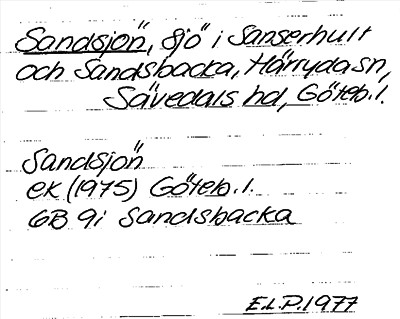 Sandsjön, sjö i Sanserhult
och Sandsbacka, Härryda sn,
Sävedals hd, Göteb. l.
Sandsjön
ek (1975) Göteb. l.
6B 9i Sandsbacka
E.L.P. 1977